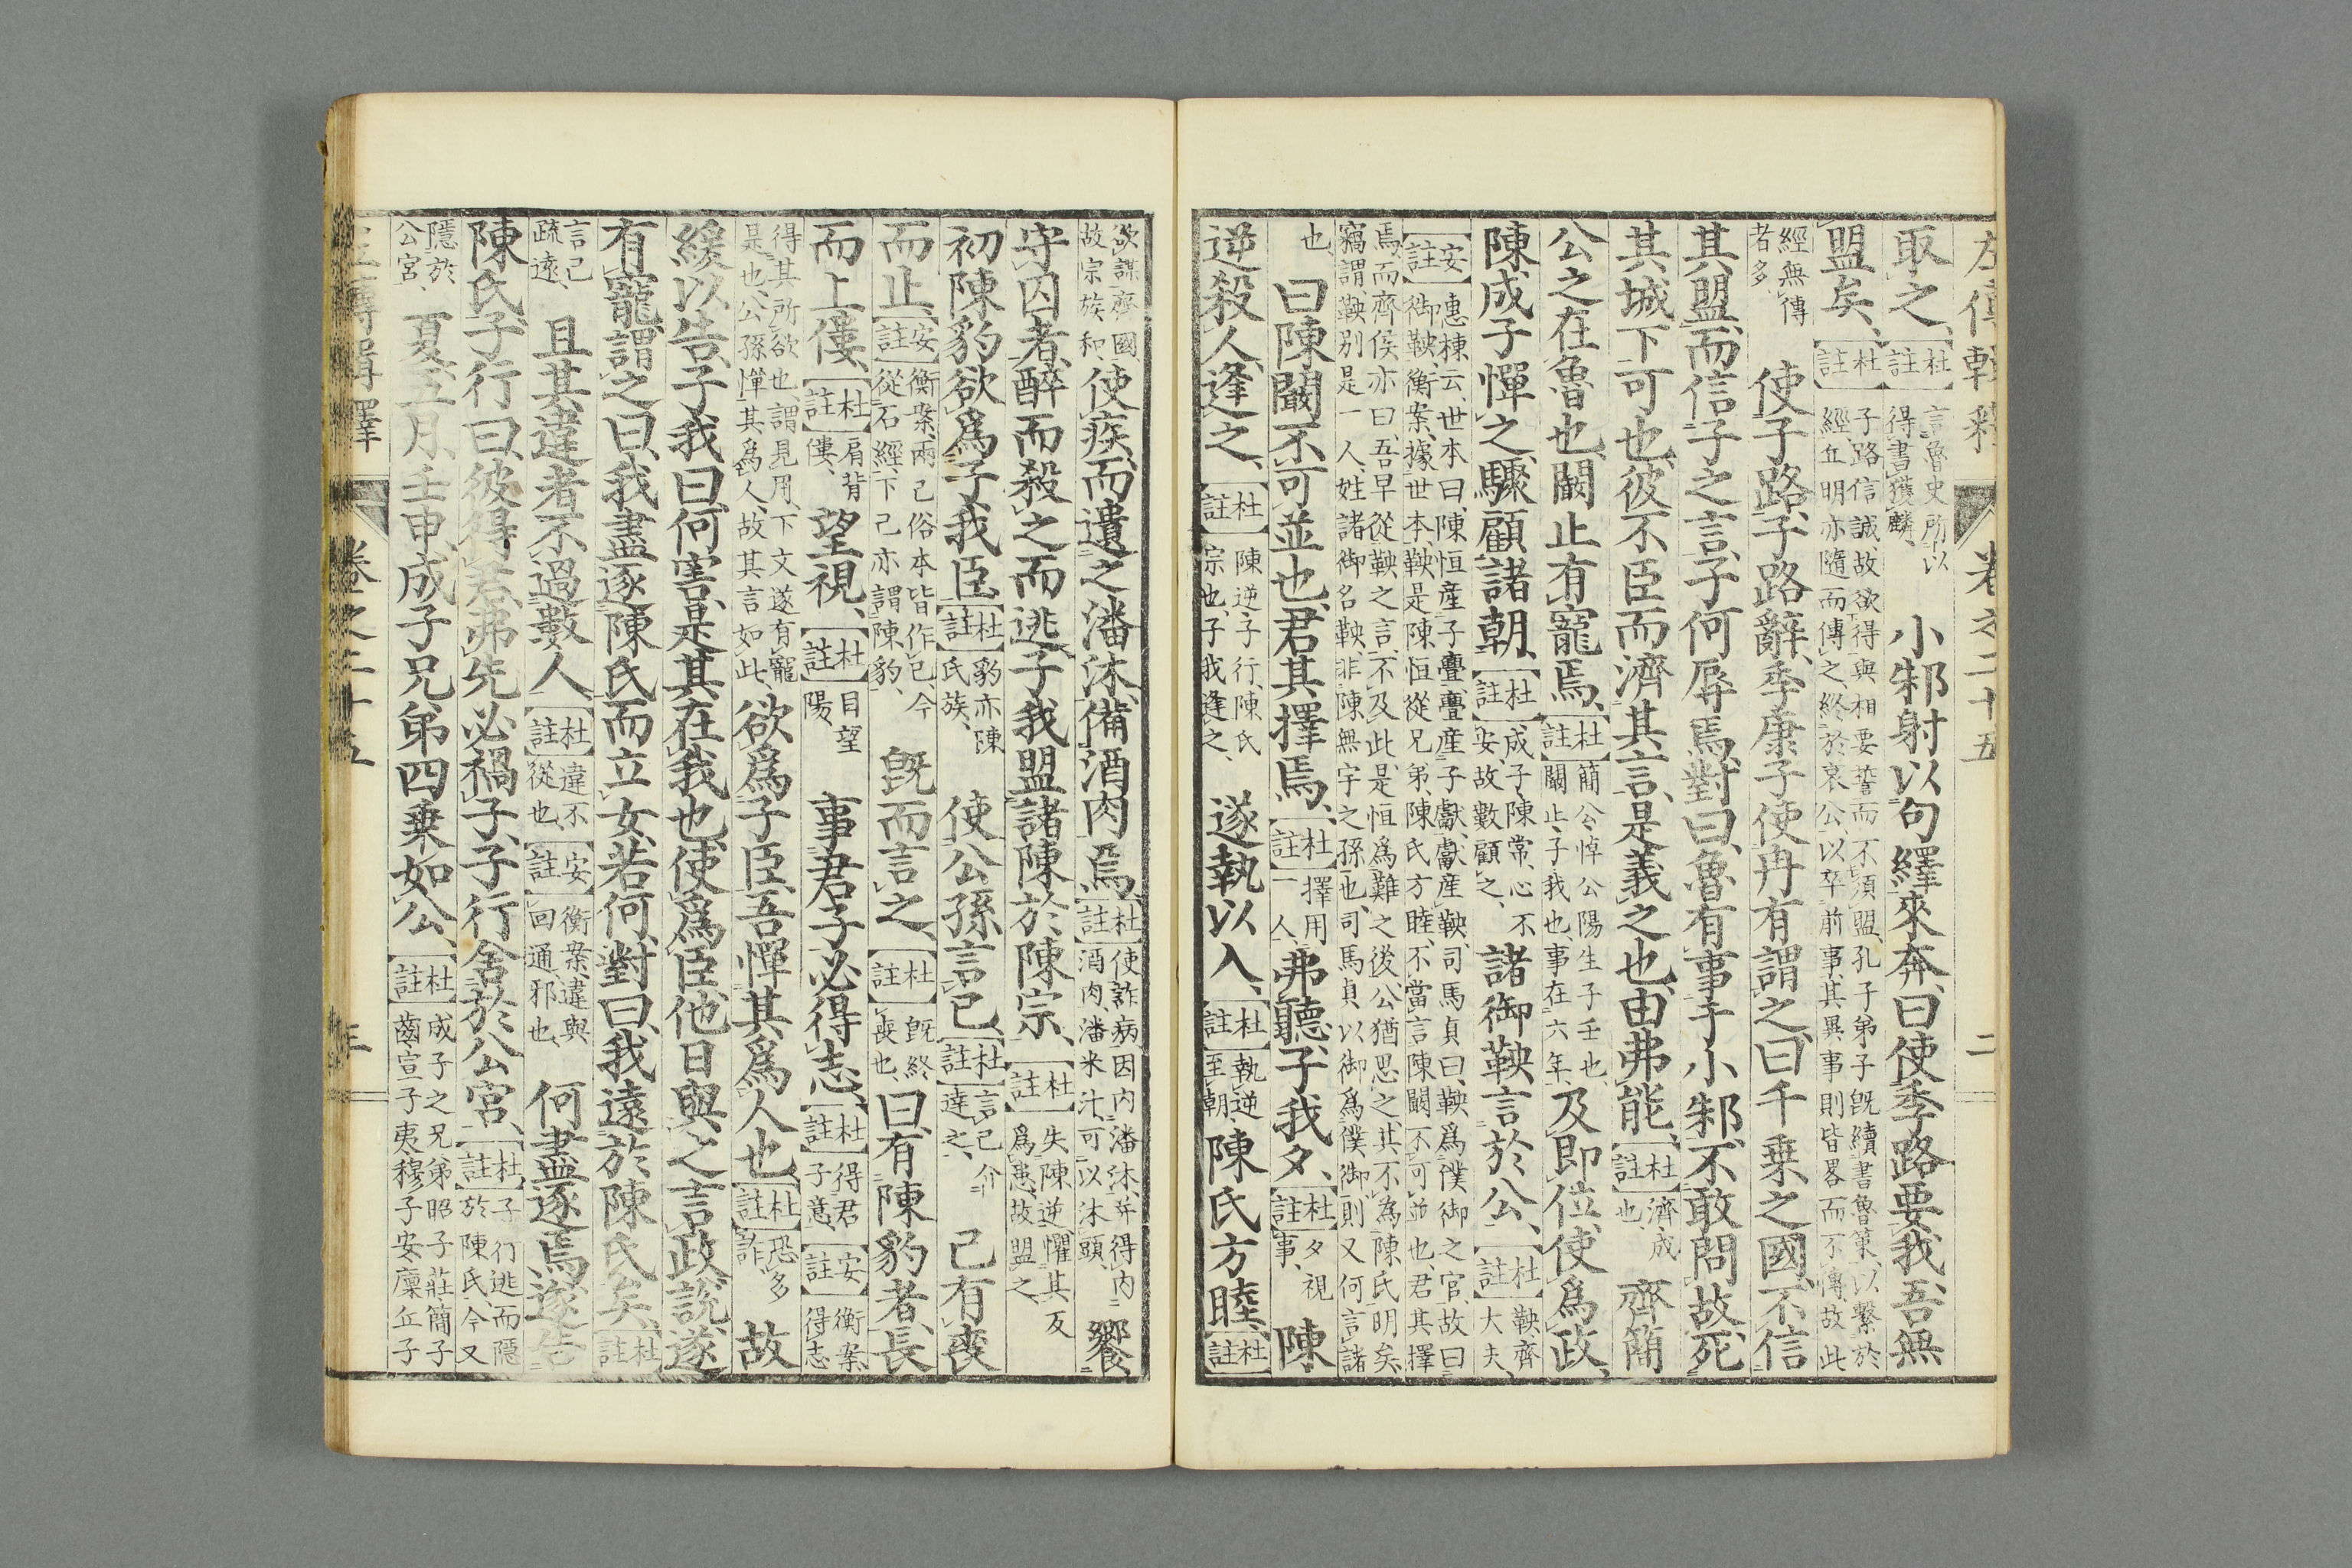 左傳輯釋 卷之二十五 二
取之、【杜註】言魯史所以得書獲麟、小邾射以句繹來奔、曰使季路要我、吾無
盟矣、【杜註】子路信誠故欲得與相要誓而不須盟孔子弟子旣續書魯策、以繫於經、丘明亦隨而傳之、終於哀公、以卒前事、其異事則皆畧而不傳、故此
經無傳者多、使子路、子路辭、季康子使冉有謂之曰千乗之國、不信
其盟、而信子之言、子何辱焉、對曰、魯有事于小邾、不敢問故、死
其城下可也、彼不臣而濟其言、是義之也、由弗能、【杜註】濟、成也、齊簡
公之在魯也、闞止有寵焉、【杜註】簡公、悼公陽生子壬也、闞止、子我也、事在六年、及即位、使爲政、
陳成子憚之、驟顧諸朝、【杜註】成子、陳常、心不安、故數顧之、諸御鞅言於公、【杜註】鞅、齊大夫、
【安註】惠棟云、世本曰、陳恒産子亹、亹産子獻、獻産鞅、司馬貞曰、鞅爲僕御之官、故曰御鞅、衡案、據世本、鞅是陳恒從兄弟、陳氏方睦、不當言陳闞不可並也、君其擇
焉、而齊侯亦曰、吾早從鞅之言、不及此、是恒爲難之後、公猶思之、其不為陳氏明矣、竊謂鞅別是一人、姓諸御名鞅、非陳無宇之孫也、司馬貞以御爲僕御、則又何言諸
也、曰陳闞不可並也、君其擇焉、【杜註】擇用一人、弗聽、子我夕、【杜註】夕視事、陳
逆殺人、逢之、【杜註】陳逆、子行、陳氏宗也、子我逢之、遂執以入、【杜註】執逆至朝、陳氏方睦、【杜註】
欲謀齊國故宗族和、使疾、而遺之潘沐、備酒肉焉、【杜註】使詐病因内潘沐、并得内酒肉、潘米汁、可以沐頭、饗
守囚者、醉而殺之而逃、子我盟諸陳於陳宗、【杜註】失陳逆懼其反爲患、故盟之、
初陳豹欲爲子我臣、【杜註】豹亦陳氏族、使公孫言己、【杜註】言己介達之、已有喪
而止、【安註】衡案、兩己俗本皆作已、今從石經、下己亦謂陳豹、旣而言之、【杜註】旣終喪也、曰、有陳豹者、長
而上僂、【杜註】肩背僂、望視、【杜註】目望陽、事君子必得志、【杜註】得君子意、【安註】衡案、得志
得其所欲也、謂見用、下文遂有寵是也、公孫憚其爲人、故其言如此、欲爲子臣、吾憚其爲人也、【杜註】恐多詐、故
緩以告、子我曰、何害、是其在我也、使爲臣、他日與之言政、說、遂
有寵、謂之曰、我盡逐陳氏而立女、若何、對曰、我遠於陳氏矣、【杜註】
言己疏遠、且其違者不過數人、【杜註】違不從也、【安註】衡案、違與回通、邪也、何盡逐焉、遂告
陳氏、子行曰、彼得君、弗先、必禍子、子行舍於公宮、【杜註】子行逃而隱於陳氏、今又
隱於公宮、夏五月、壬申、成子兄弟四乗如公、【杜註】成子之兄弟昭子莊、簡子齒、宣子夷、穆子安、廩丘子
卷之二十五